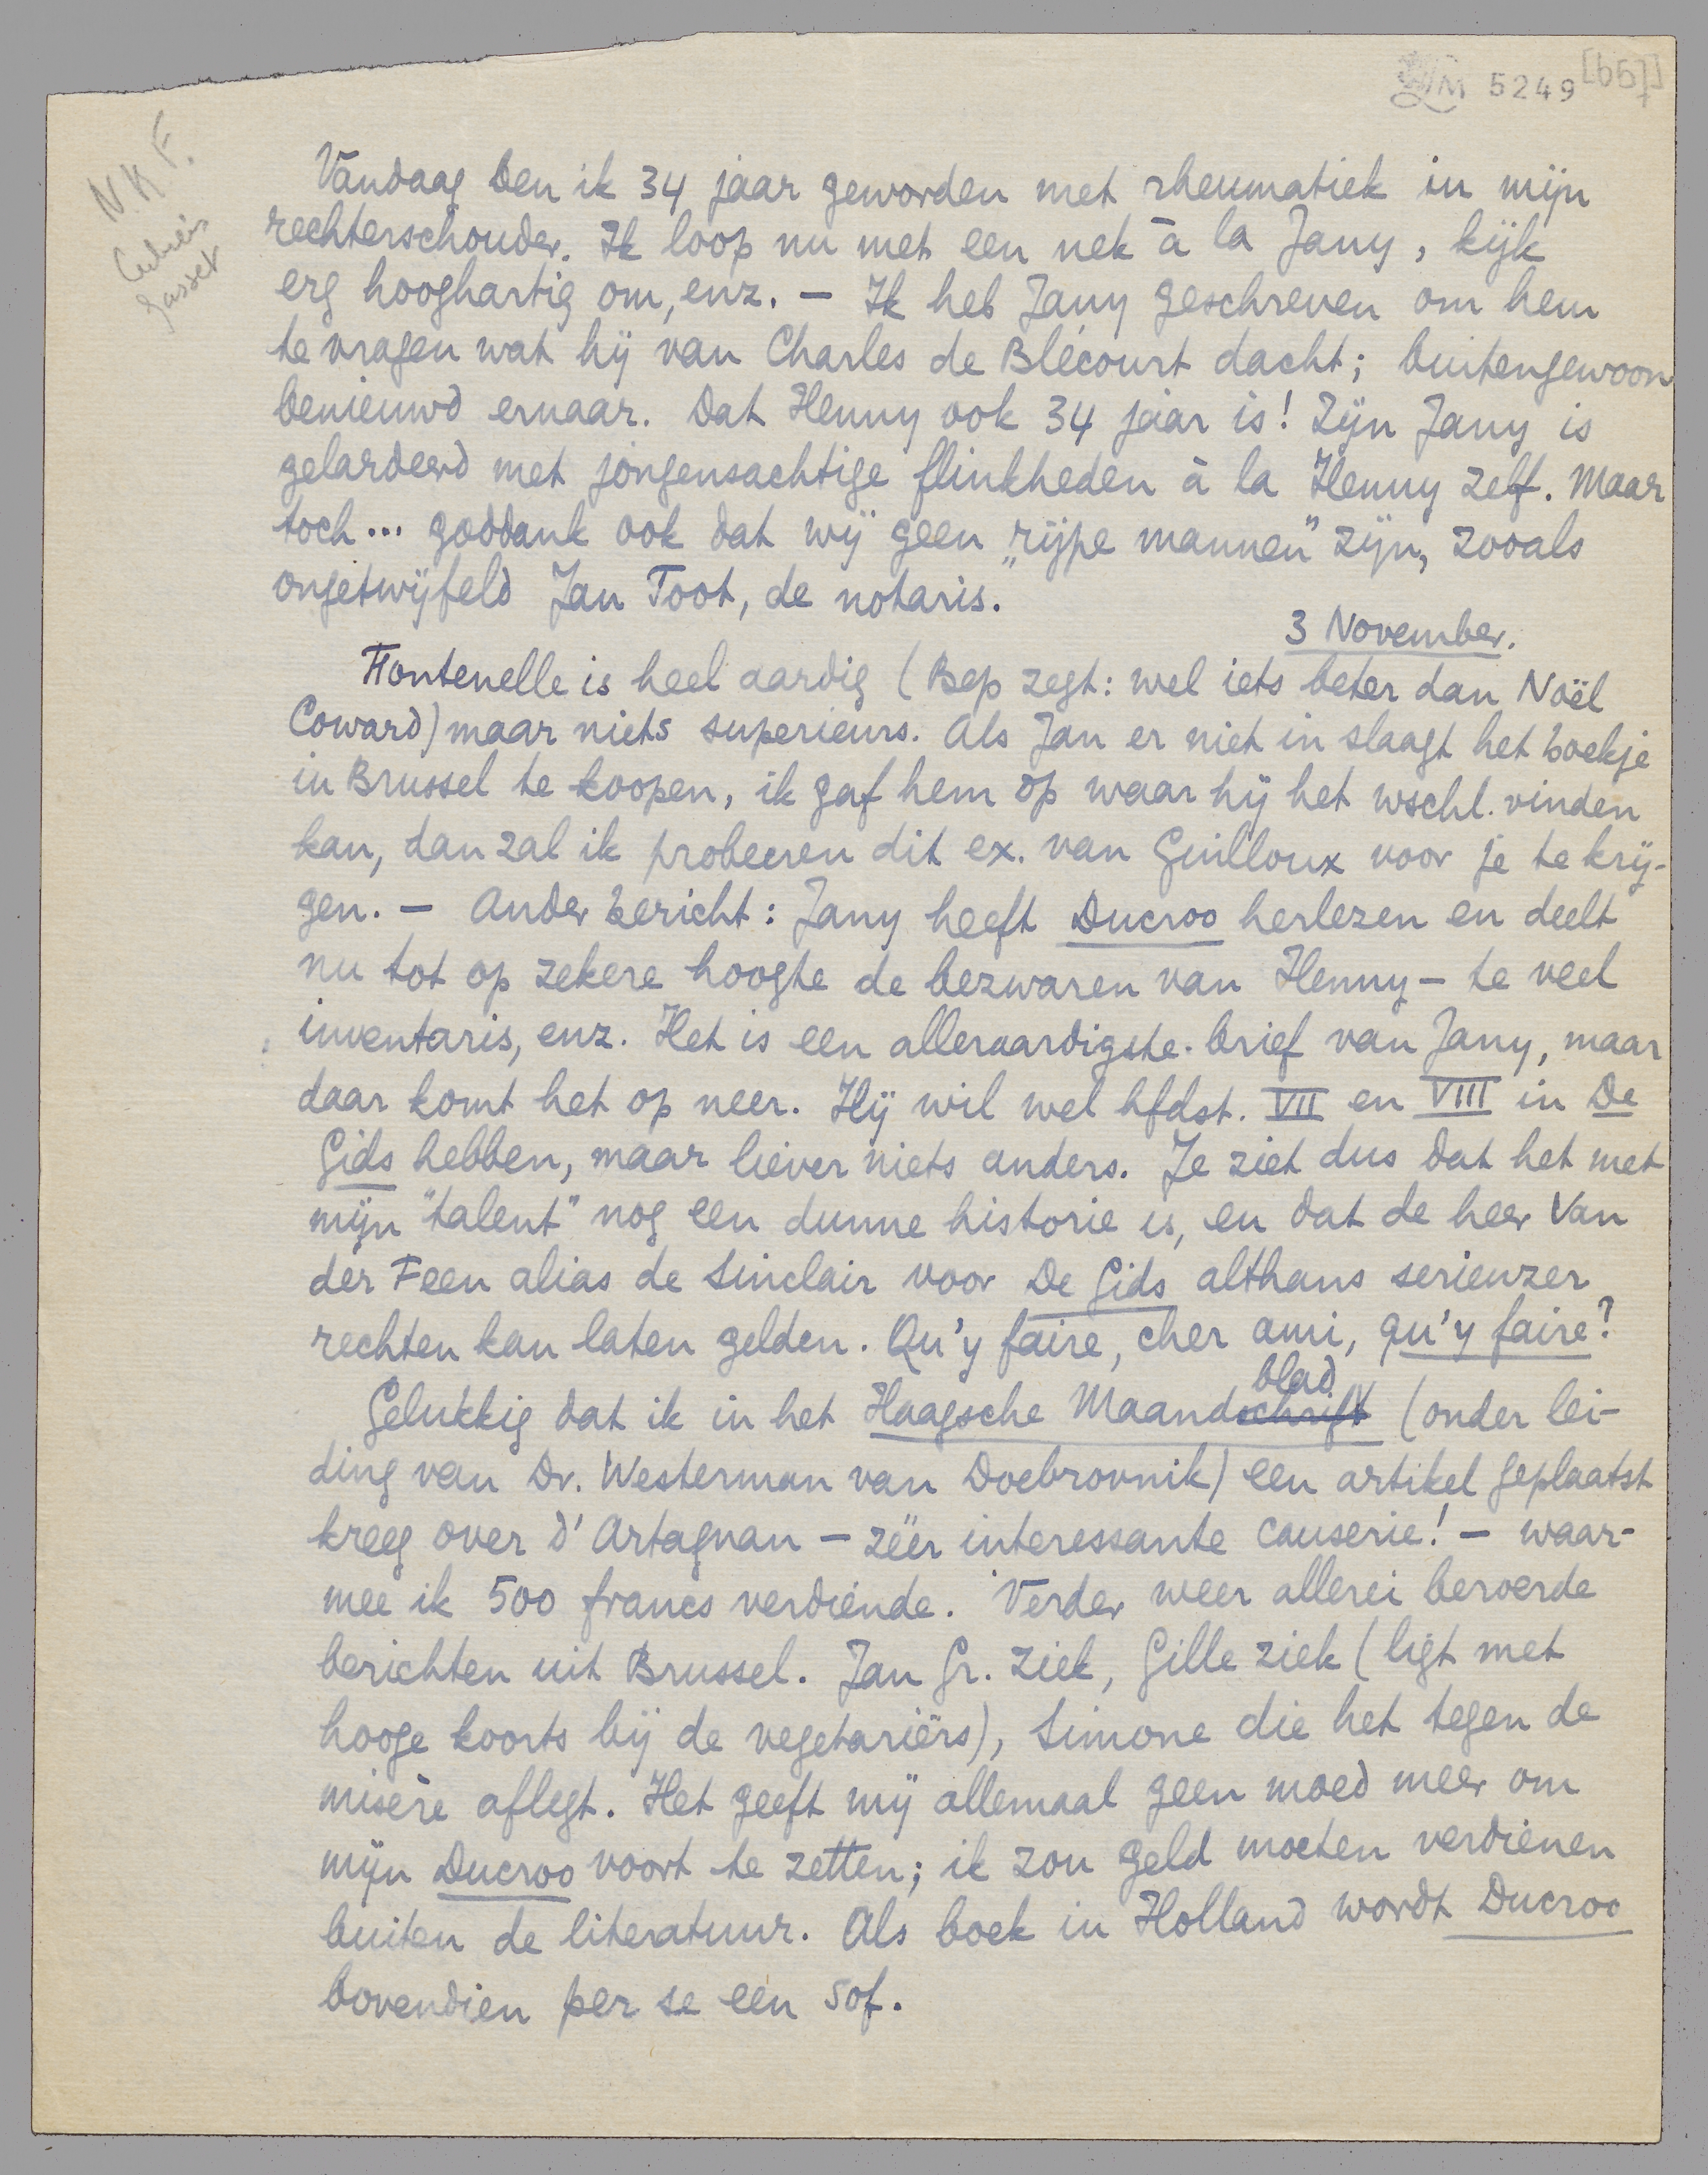 LM 5249 [65]
N.K.F.
Vandaag ben ik 34 jaar geworden met rheumatiek in mijn
rechterschouder. Ik loop nu met een nek à la Jany, kijk
erg hooghartig om, enz. — Ik heb Jany geschreven om hem
te vragen wat hij van Charles de Blécourt dacht; buitengewoon
benieuwd ernaar. Dat Henny ook 34 jaar is! Zijn Jany is
gelardeerd met jongensachtige flinkheden à la Henny zelf. Maar
toch... goddank ook dat wij geen „rijpe mannen” zijn, zooals
ongetwijfeld Jan Toot, de notaris.
3 November.
Fontenelle is heel aardig (Bep zegt: wel iets beter dan Noël
Coward) maar niets superieurs. Als Jan er niet in slaagt het boekje
in Brussel te koopen, ik gaf hem op waar hij het wschl. vinden
kan, dan zal ik probeeren dit ex. van Guilloux voor je te krij-
gen. — Ander bericht: Jany heeft Ducroo herlezen en deelt
nu tot op zekere hoogte de bezwaren van Henny — te veel
inventaris, enz. Het is een alleraardigste brief van Jany, maar
daar komt het op neer. Hij wil wel hfdst. VII en VIII in De
Gids hebben, maar liever niets anders. Je ziet dus dat het met
mijn "talent" nog een dunne historie is, en dat de heer Van
der Feen alias de Sinclair voor De Gids althans serieuzer
rechten kan laten gelden. Qu'y faire, cher ami, qu'y faire?
blad
Gelukkig dat ik in het Haagsche Maandschrift (onder lei-
ding van Dr. Westerman van Doebrovnik) een artikel geplaatst
kreeg over d'Artagnan — zéér interessante causerie! — waar-
mee ik 500 francs verdiende. Verder weer allerei beroerde
berichten uit Brussel. Jan Gr. ziek, Gille ziek (ligt met
hooge koorts bij de vegetariërs), Simone die het tegen de
misère aflegt. Het geeft mij allemaal geen moed meer om
mijn Ducroo voort te zetten; ik zou geld moeten verdienen
buiten de literatuur. Als boek in Holland wordt Ducroo
bovendien per se een sof.